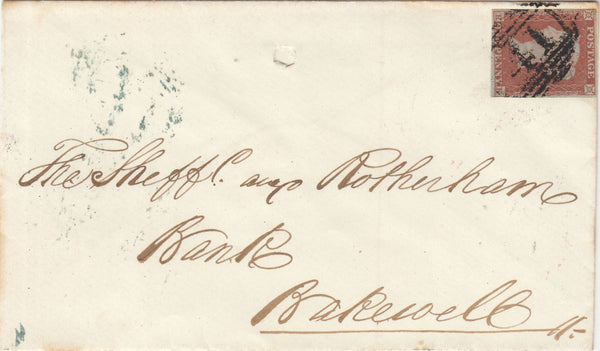 POSTAGE
The Sheffd. and Rotherham
Bank
Bakewell